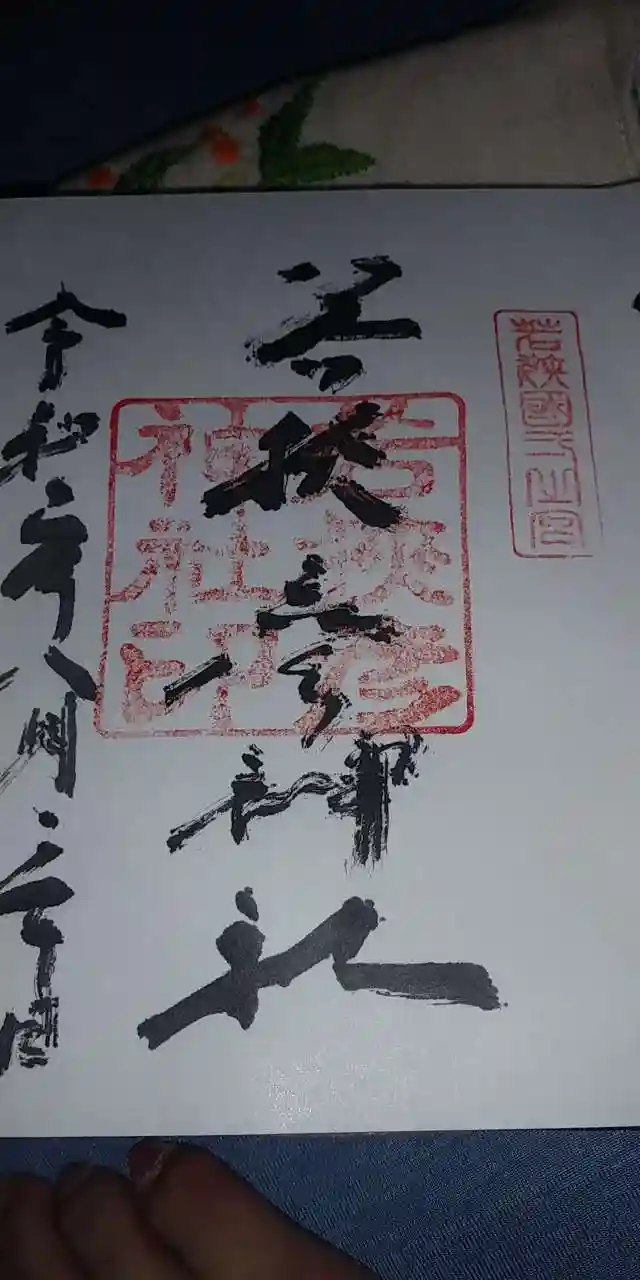 若狭國一之宮
若狭彦神社
若狭彦
神社印
令和 年八月 日